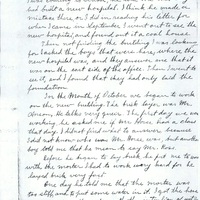 had built a new hospital. I think he made a
mistake then, or I did in reading his letter, for
when I came in September I went out to see the
new hospital, and found out it a coal house.
Then, not finding the building I was looking
for I asked the boys that were here, where the
new hospital was, and they answer me that it
was on the east side of the office. Then I went to
see it, and I found that they had only laid the
foundation.
In the Month of October we began to work
on the new building. The brick layer was Mr.
He talks very queer. The first day we were
working he asked one of Mr. Rose has a class
that day. I did not find what to answer, because
I did not know who was Mr. Rose was, but another
boy told me that he mean to say Mr. Ross.
Before he began to lay brick he put me to work
with the mortar. I had to work very hard for he
layed brick very fast.
One day he told me that the mortar was
too stiff, and to put some water in it. I got the